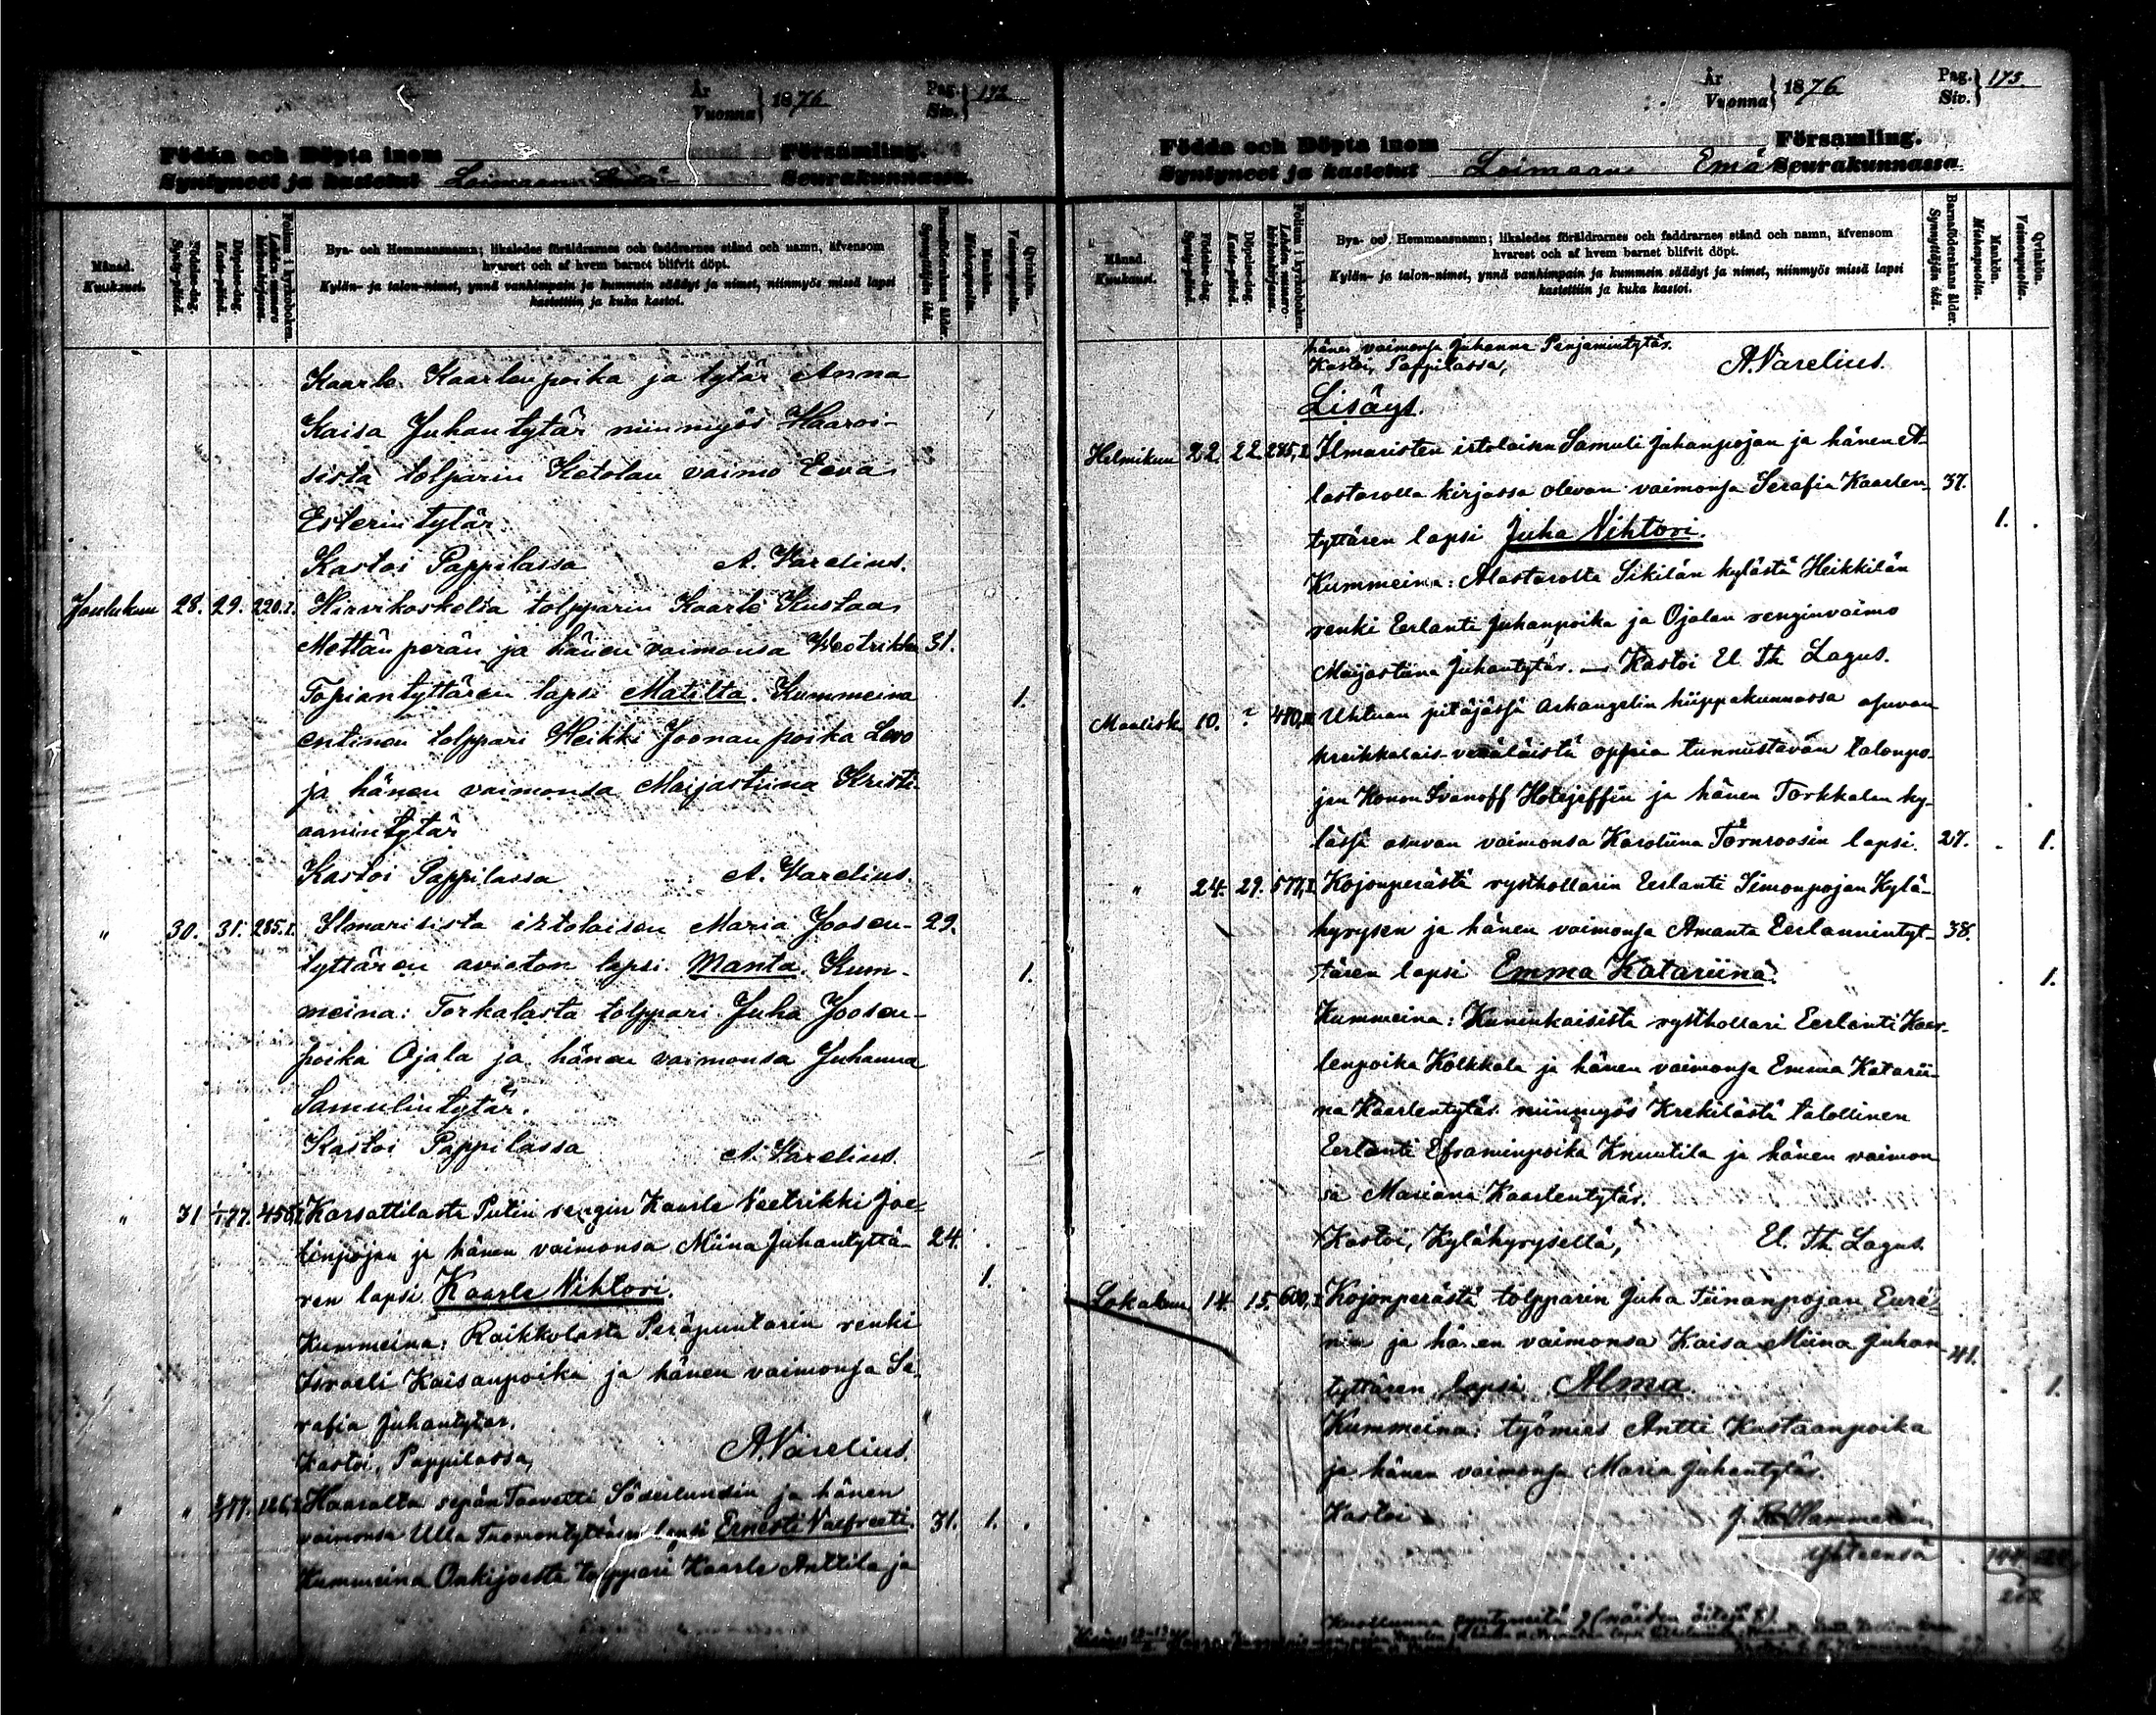 År
Vuonna } 1876
Pag.
Siv. } 172
Födda och Döpta inom Församling.
Syntyneet ja kastetut Loimaan Emä Seurakunnassa.
Månad.
Kuukausi.
Födelse-dag.
Synty-päivä.
Döpelse-dag.
Kaste-päivä.
Folium i kyrkoboken.
Lehden numero kirkonkirjassa.
Bya- och Hemmansnamn; likaledes föräldrarnes och faddrarnes stånd och namn, äfvensom
hvarest och af hvem barnet blifvit döpt.
Kylän- ja talon-nimet, ynnä vanhimpain ja kummein säädyt ja nimet, niinmyös missä lapsi
kastettiin ja kuka kastoi.
Barnaföderskans ålder.
Synnyttäjän ikä.
Mankön.
Miehenpuolia.
Qvinkön.
Vaimonpuolia.
Kaarlo Kaarlenpoika ja tytär Anna
Kaisa Juhantytär niinmyös Haaroi-
sista tolparin Ketolan vaimo Eeva
Esterintytär
Kastoi Pappilassa A. Varelius.
Joulukuu 28. 29. 220.I. Hirvikoskelta tolpparin Kaarlo Kustaa
Mettänperän ja hänen vaimonsa Weetrikka 31.
Topiantyttären lapsi Matilta. Kummeina 1.
entinen tolppari Heikki Joonanpoika Levo
ja hänen vaimonsa Maijastiina Kristi-
aanintytär
Kastoi Pappilassa A. Varelius.
" 30. 31. 285.I. Ilmarisista istolaisen Maria Joosen- 29.
tyttären avioton lapsi Manta. Kum- 1.
meina: Torkalasta tolppari Juha Joosen-
poika Ojala ja hänen vaimonsa Juhanna
Samulintytär.
Kastoi Pappilassa A. Varelius.
" 31 1/1 77. Karsattilasta Putin rengin Kaarle Veetrikki Joe-
linpojan ja hänen vaimonsa Miina Juhantyttä- 24.
ren lapsi Kaarle Vihtori. 1.
Kummeina: Raikkolasta Peräpuntarin renki
Israeli Kaisanpoika ja hänen vaimonsa Se-
rafia Juhantytär.
Kastoi, Pappilassa, A. Varelius.
" " Haaralta sepän Taavetti Söderlundin ja hänen
vaimonsa Ulla Tuomontyttären lapsi Ernesti Valfreeti. 31. 1.
Kummeina Onkijoesta tolppari Kaarle Anttila ja
År
Vuonna } 1876
Pag.
Siv. } 173.
Födda och Döpta inom Församling.
Syntyneet ja kastetut Loimaan Emä Seurakunnassa
Månad.
Kuukausi.
Födelse-dag.
Synty-päivä.
Döpelse-dag.
Kaste-päivä.
Folium i kyrkoboken.
Lehden numero kirkonkirjassa.
Bya- och Hemmansnamn; likaledes föräldrarnes och faddrarnes stånd och namn, äfvensom
hvarest och af hvem barnet blifvit döpt.
Kylän- ja talon-nimet, ynnä vanhimpain ja kummein säädyt ja nimet, niinmyös missä lapsi
kastettiin ja kuka kastoi.
Barnaföderskans ålder.
Synnyttäjän ikä.
Mankön.
Miehenpuolia.
Qvinkön.
Vaimonpuolia.
hänen vaimonsa Juhanna Penjamintytär.
Kastoi, Pappilassa, A. Varelius.
Lisäys.
Helmikuu 22. 22. 285,I. Ilmaristen istolaisen Samuli Juhanpojan ja hänen A-
lastarolla kirjassa olevan vaimonsa Serafia Kaarlen- 37.
tyttären lapsi Juha Vihtori. 1.
Kummeina: Alastarolta Sikilän kylästä Heikkilän
renki Eerlanti Juhanpoika ja Ojalan renginvaimo
Maijastiina Juhantytär. — Kastoi El. Th. Lagus.
Maalisk. 10. ? Uhtuan pitäjässä Arkangelin hiippakunnassa asuvan
kreikkalais-venäläistä oppia tunnustavan talonpo-
jan Konon Ivanoff Hotejeffin ja hänen Torkkalan ky-
lässä asuvan vaimonsa Karoliina Törnroosin lapsi. 27. 1.
" 24. 29. 577,I. Kojonperästä rysthollarin Eerlanti Simonpojan Kylä-
hyrysen ja hänen vaimonsa Amanta Eerlannintyt- 38.
tären lapsi Emma Katariina. 1.
Kummeina: Kuninkaisista rysthollari Eerlanti Kaar-
lenpoika Kolkkala ja hänen vaimonsa Emma Katarii-
na Kaarlentytär niinmyös Krekilästä talollinen
Eerlanti Eframinpoika Knuutila ja hänen vaimon
sa Mariana Kaarlentytär.
Kastoi, Kylähyrysellä, El. Th. Lagus.
Lokakuu 14. 15. 600,I. Kojonperästä tolpparin Juha Tiinanpojan Eure-
nin ja hänen vaimonsa Kaisa Miina Juhan- 41.
tyttären lapsi Alma 1.
Kummeina: työmies Antti Kustaanpoika
ja hänen vaimonsa Maria Juhantytär.
Kastoi
Yhteensä
Kuolleena syntyneitä 9 (näiden äitejä 8).